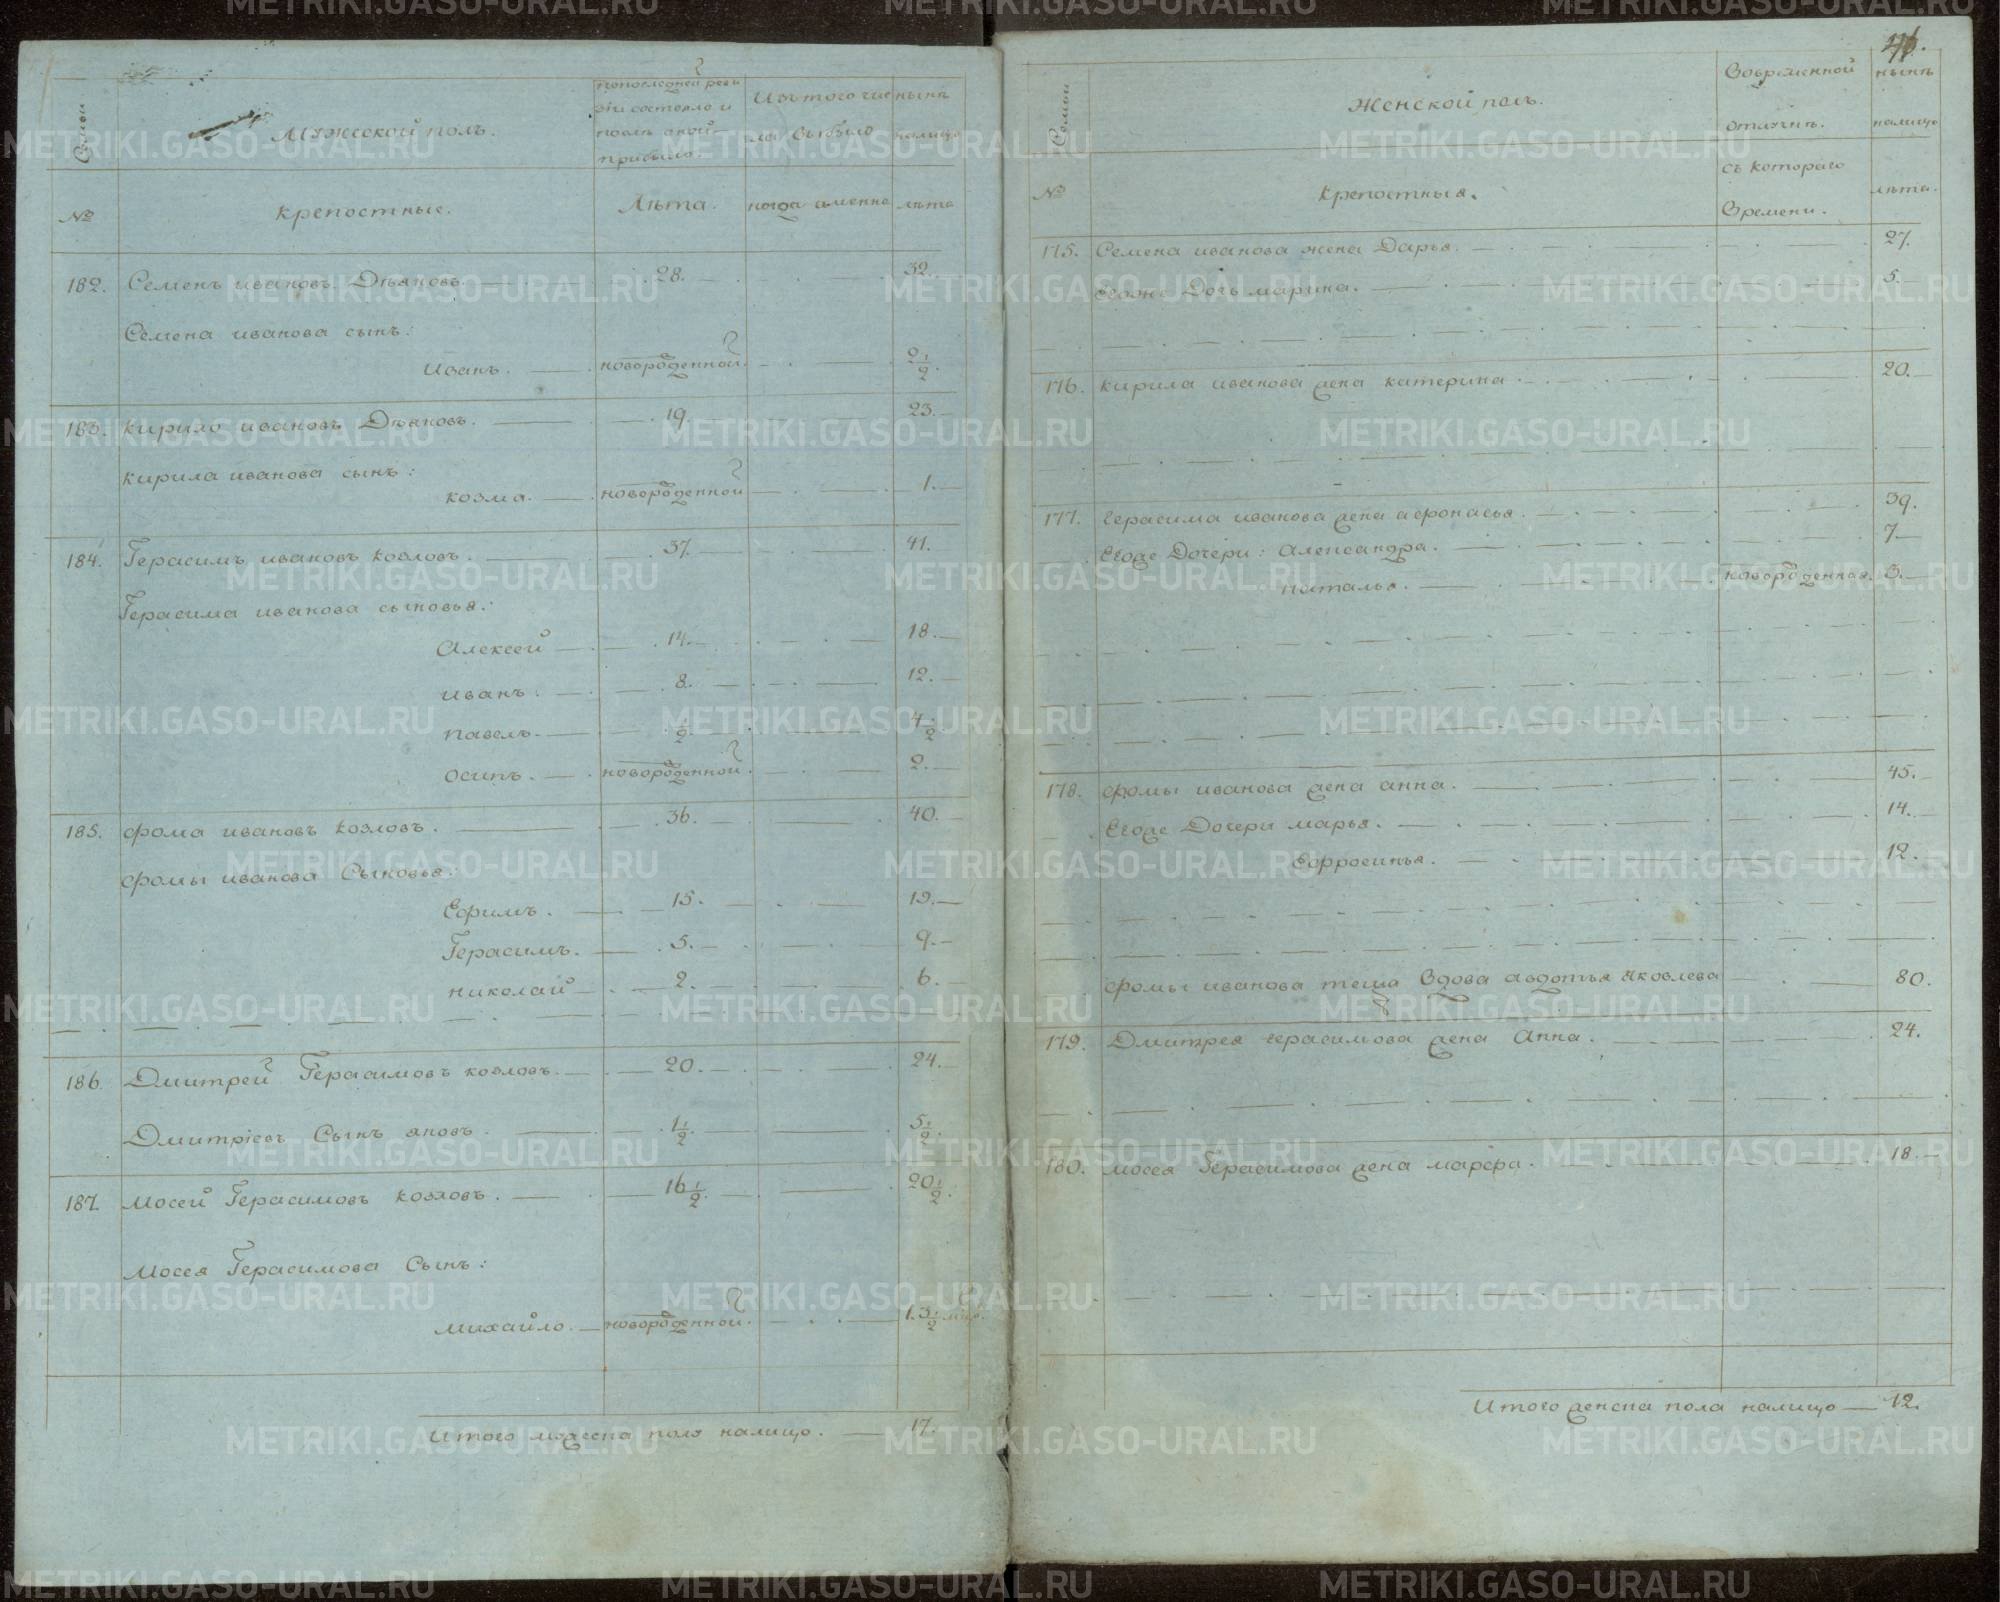 Семьи
Мужеской полъ.
попоследней реви
зiи состояло и
после оной
прибыло.
Изътого чис
ла выбыло
нынѣ
налицо
№
крепостные.
Лѣта.
когда именно
лѣта
182. Семенъ ивановъ Дьяковъ. 28. 32.
Семена иванова сынъ:
Иванъ. новорожденной. 2 1/2.
183. кирило ивановъ Дьяковъ. 19. 23.
кирила иванова сынъ:
козма. новорожденной 1.
184. Герасимъ ивановъ козловъ. 37. 41.
Герасима иванова сыновья:
Алексей 14. 18.
иванъ. 8. 12.
павелъ. 1/2 4 1/2
осипъ. новорожденной. 2.
185. фома ивановъ козловъ. 36. 40.
фомы иванова Сыновья:
Ефимъ. 15. 19.
Герасимъ. 5. 9.
николай 2. 6.
186. Дмитрей Герасимовъ козловъ. 20. 24.
Дмитрiевъ Сынъ яковъ. 1 1/2. 5 1/2.
187. Мосей Герасимовъ козловъ. 16 1/2. 20 1/2.
Мосея Герасимова Сынъ:
михайло. новорожденной. 1.3 1/2 мец.
Итого мужеска полу налицо. 17.
46.
Семьи
Женской полъ.
Вовременной
отлучке.
нынѣ
налицо
№
крепостныя.
съ котораго
Времени.
лѣта.
175. Семена иванова жена Дарья. 27.
Егоже Дочь марина. 5.
176. кирила иванова жена катерина. 20.
177. Герасима иванова жена афонасья. 39.
Егоже Дочери: Александра. 7.
наталья. новорожденная. 3.
178. фомы иванова жена анна. 45.
Егоже Дочери марья. 14.
Ефросинья. 12.
фомы иванова теща Вдова авдотья Яковлева 80.
179. Дмитрея герасимова жена Анна. 24.
180. мосея Герасимова жена марфа. 18.
Итого женска пола налицо 12.
METRIKI.GASO-URAL.RU